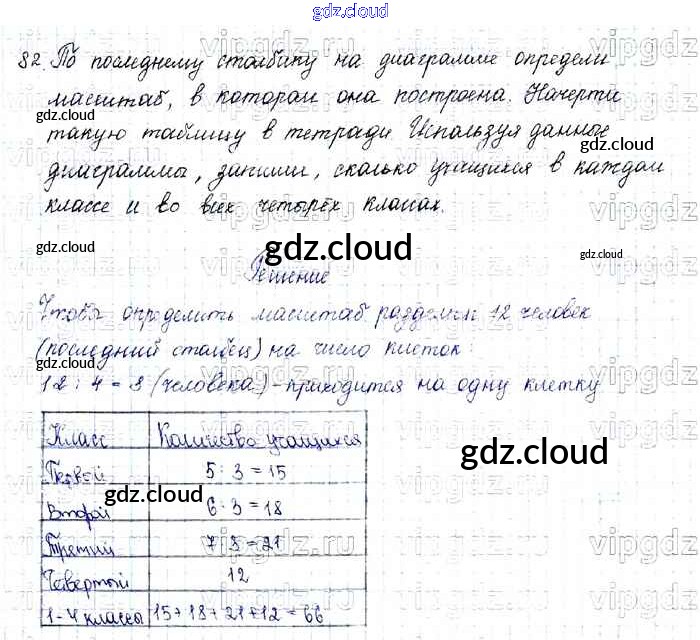 gdz.cloud
82. По последнему столбику на диаграмме определи
масштаб, в котором она построена. Начерти
такую таблицу в тетради. Используя данные
диаграммы, запиши, сколько учащихся в каждом
классе и во всех четырёх классах.
Решение
Чтобы определить масштаб разделим 12 человек
(последний столбец) на число клеток:
12 : 4 = 3 (человека) - приходится на одну клетку
Класс Количество учащихся
Первый 5 · 3 = 15
Второй 6 · 3 = 18
Третий 7 · 3 = 21
Четвертый 12
1-4 классы 15+18+21+12=66
gdz.cloud
gdz.cloud
gdz.cloud
gdz.cloud
gdz.cloud
gdz.cloud
gdz.cloud
gdz.cloud
gdz.cloud
vipgdz.ru